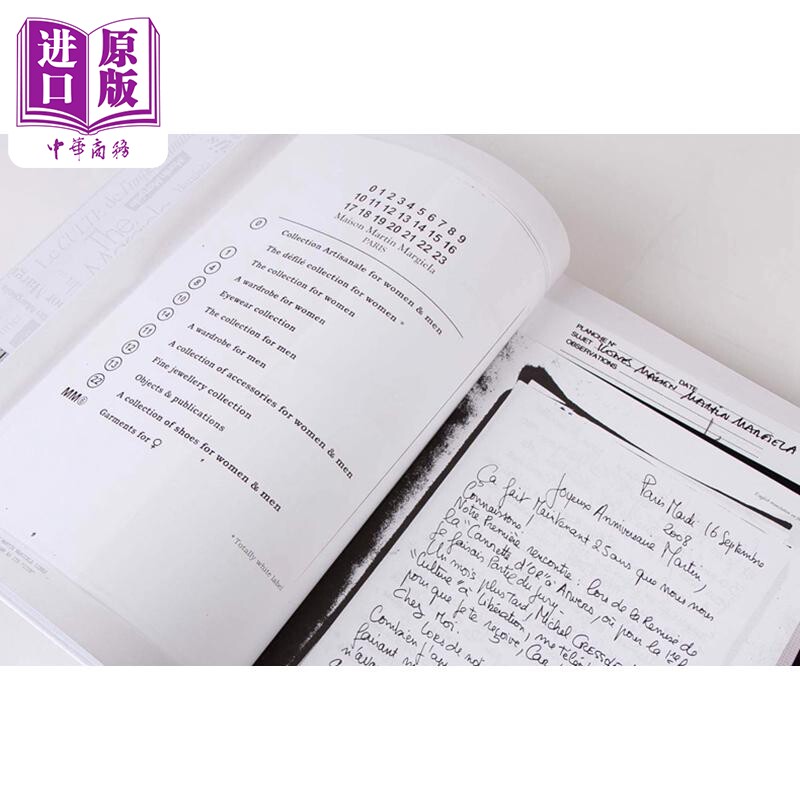 进口
原版
中华商务
0 1 2 3 4 5 6 7 8 9
10 11 12 13 14 15 16
17 18 19 20 21 22 23
Maison Martin Margiela
PARIS
0 Collection Artisanale for women & men
1 The défilé collection for women *
4 The collection for women
6 A wardrobe for women
8 Eyewear collection
10 The collection for men
14 A wardrobe for men
11 A collection of accessories for women & men
12 Fine jewellery collection
13 Objects & publications
22 A collection of shoes for women & men
MM⑥ Garments for ♀
* Totally white label
PLANCHE N°
DATE
SUJET Maison MARTIN MARGIELA
OBSERVATIONS
Paris Mardi 16 Septembre
2008
Joyeux Anniversaire Martin,
Ça fait Maintenant 25 ans que nous nous
connaissons!
Notre Première rencontre: Lors de la Remise de
la "Cannette d'OR" à Anvers, où pour la 1ère
Je faisais Partie du jury
Un mois plus tard, Michel CRESSOLE
"Culture" à Libération, me télé
pour que je te reçoive, Car
Chez Moi.
Combien j'ap
Lors de not
faisant